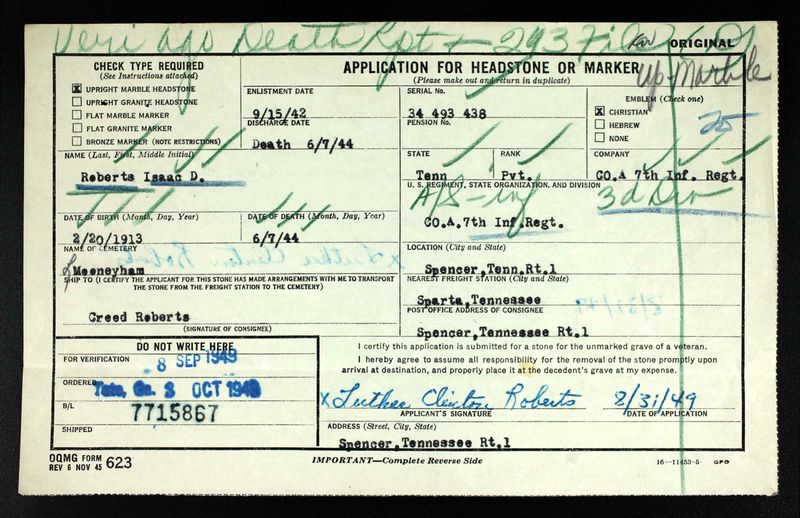 Veri ago Death Rpt + 293 File
ORIGINAL
Up-Marble
CHECK TYPE REQUIRED
(See Instructions attached)
X UPRIGHT MARBLE HEADSTONE
UPRIGHT GRANITE HEADSTONE
FLAT MARBLE MARKER
FLAT GRANITE MARKER
BRONZE MARKER (NOTE RESTRICTIONS)
APPLICATION FOR HEADSTONE OR MARKER
(Please make out and return in duplicate)
ENLISTMENT DATE
9/15/42
DISCHARGE DATE
Death 6/7/44
SERIAL No.
34 493 438
PENSION No.
EMBLEM (Check one)
X CHRISTIAN
HEBREW
NONE
25
NAME (Last, First, Middle Initial)
Roberts Isaac D.
STATE
Tenn
RANK
Pvt.
COMPANY
CO.A 7th Inf. Regt.
U. S. REGIMENT, STATE ORGANIZATION, AND DIVISION
A/S-inf 3d Div
CO.A.7th Inf.Regt.
DATE OF BIRTH (Month, Day, Year)
2/20/1913
DATE OF DEATH (Month, Day, Year)
6/7/44
NAME OF CEMETERY
Mooneyham
LOCATION (City and State)
Spencer,Tenn.Rt.1
SHIP TO (I CERTIFY THE APPLICANT FOR THIS STONE HAS MADE ARRANGEMENTS WITH ME TO TRANSPORT
THE STONE FROM THE FREIGHT STATION TO THE CEMETERY)
Creed Roberts
(SIGNATURE OF CONSIGNEE)
NEAREST FREIGHT STATION (City and State)
Sparta,Tennessee
POST OFFICE ADDRESS OF CONSIGNEE
Spencer,Tennessee Rt.1
DO NOT WRITE HERE
FOR VERIFICATION
8 SEP 1949
ORDERED
Tate, Ga. 3 OCT 1949
B/L
7715867
SHIPPED
I certify this application is submitted for a stone for the unmarked grave of a veteran.
I hereby agree to assume all responsibility for the removal of the stone promptly upon
arrival at destination, and properly place it at the decedent's grave at my expense.
x Luther Clinton Roberts 8/31/49
APPLICANT'S SIGNATURE DATE OF APPLICATION
ADDRESS (Street, City, State)
Spencer,Tennessee Rt.1
OQMG FORM
REV 6 NOV 45 623
IMPORTANT—Complete Reverse Side
16—11453-5 GPO